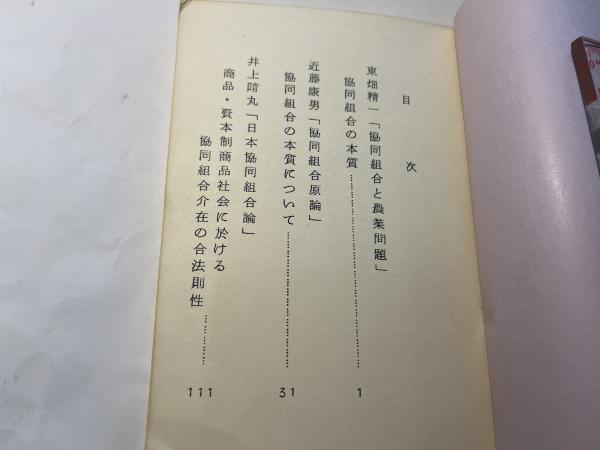 目次
東畑精一「協同組合と農業問題」
協同組合の本質……………………1
近藤康男「協同組合原論」
協同組合の本質について……………………31
井上晴丸「日本協同組合論」
商品・資本制商品社会に於ける
協同組合介在の合法則性…………111